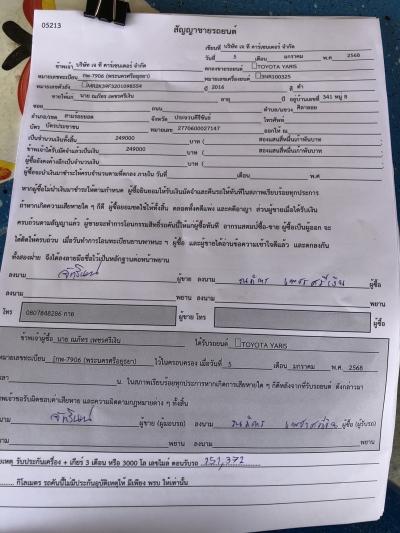 05213
สัญญาขายรถยนต์
เขียนที่ บริษัท เจ ที คาร์เซนเตอร์ จำกัด
วันที่ 5 เดือน มกราคม พ.ศ. 2568
ข้าพเจ้า บริษัท เจ ที คาร์เซนเตอร์ จำกัด ตกลงขายรถยนต์ TOYOTA YARIS
หมายเลขทะเบียน กพ-7906 (พระนครศรีอยุธยา) หมายเลขเครื่องยนต์
หมายเลขตัวถัง ปี 2016 สี ดำ
ขายให้แก่ นาย ณภัทร เพชรศรีเงิน อายุ ปี อยู่บ้านเลขที่ 341 หมู่ 8
ซอย ถนน ตำบล/แขวง ศิลาลอย
อำเภอ/เขต สามร้อยยอด จังหวัด ประจวบคีรีขันธ์ โทรศัพท์
บัตร บัตรประชาชน หมายเลข 2770600027147 ออกให้ ณ
เป็นจำนวนเงินทั้งสิ้น 249000 บาท ( สองแสนสี่หมื่นเก้าพันบาท
ข้าพเจ้าได้รับมัดจำแล้วเป็นเงิน 249000 บาท ( สองแสนสี่หมื่นเก้าพันบาท
ผู้ซื้อยังคงค้างอีกเป็นจำนวนเงิน บาท (
ผู้ซื้อจะนำเงินมาชำระให้ครบจำนวนตามที่ตกลง ภายใน วันที่ เดือน พ.ศ.
หากผู้ซื้อไม่นำเงินมาชำระให้ตามกำหนด ผู้ซื้อยินยอมให้ริบเงินมัดจำและคืนรถให้ทันทีในสภาพเรียบร้อยทุกประการ
ถ้าหากเกิดความเสียหายใด ๆ ก็ดี ผู้ซื้อยอมชดใช้ให้ทั้งสิ้น ตลอดทั้งคดีแพ่ง และคดีอาญา ส่วนผู้ขายเมื่อได้รับเงิน
ครบถ้วนตามสัญญาแล้ว ผู้ขายจะทำการโอนกรรมสิทธิ์รถคันนี้ให้แก่ผู้ซื้อทันที อากรแสตมป์ซื้อ-ขาย ผู้ซื้อเป็นผู้ออก จะ
ให้ผู้ขายและผู้ซื้อได้อ่านข้อความเข้าใจดีแล้ว และตกลงกัน
ทั้งสองฝ่าย จึงได้ลงลายมือชื่อไว้เป็นหลักฐานต่อหน้าพยาน
ลงนาม ผู้ขาย ลงนาม ณภัทร เพชรศรีเงิน ผู้ซื้อ
ลงนาม พยาน ลงนาม พยาน
โทร 0807848286 ผู้ขาย โทร ผู้ซื้อ
ข้าพเจ้าผู้ซื้อ นาย ณภัทร เพชรศรีเงิน ได้รับรถยนต์ TOYOTA YARIS
หมายเลขทะเบียน กพ-7906 (พระนครศรีอยุธยา) ไว้ในครอบครอง เมื่อวันที่ 5 เดือน มกราคม พ.ศ. 2568
น. ในสภาพเรียบร้อยทุกประการหากเกิดการเสียหายใด ๆ ก็ดีหลังจากที่รับรถยนต์ ดังกล่าวมา
ข้าพเจ้าขอรับผิดชอบต่อค่าเสียหาย และความผิดตามกฎหมายต่าง ๆ ทั้งสิ้น
ลงนาม ผู้ขาย (ผู้มอบรถ) ลงนาม ณภัทร เพชรศรีเงิน ผู้ซื้อ (ผู้รับรถ)
ลงนาม พยาน ลงนาม พยาน
รับประกันเครื่อง + เกียร์ 3 เดือน หรือ 3000 โล เลขไมล์ ตอนรับรถ 151,372
กิโลเมตร รถคันนี้ไม่มีประกันอุบัติเหตุให้ มีเพียง พรบ ให้เท่านั้น